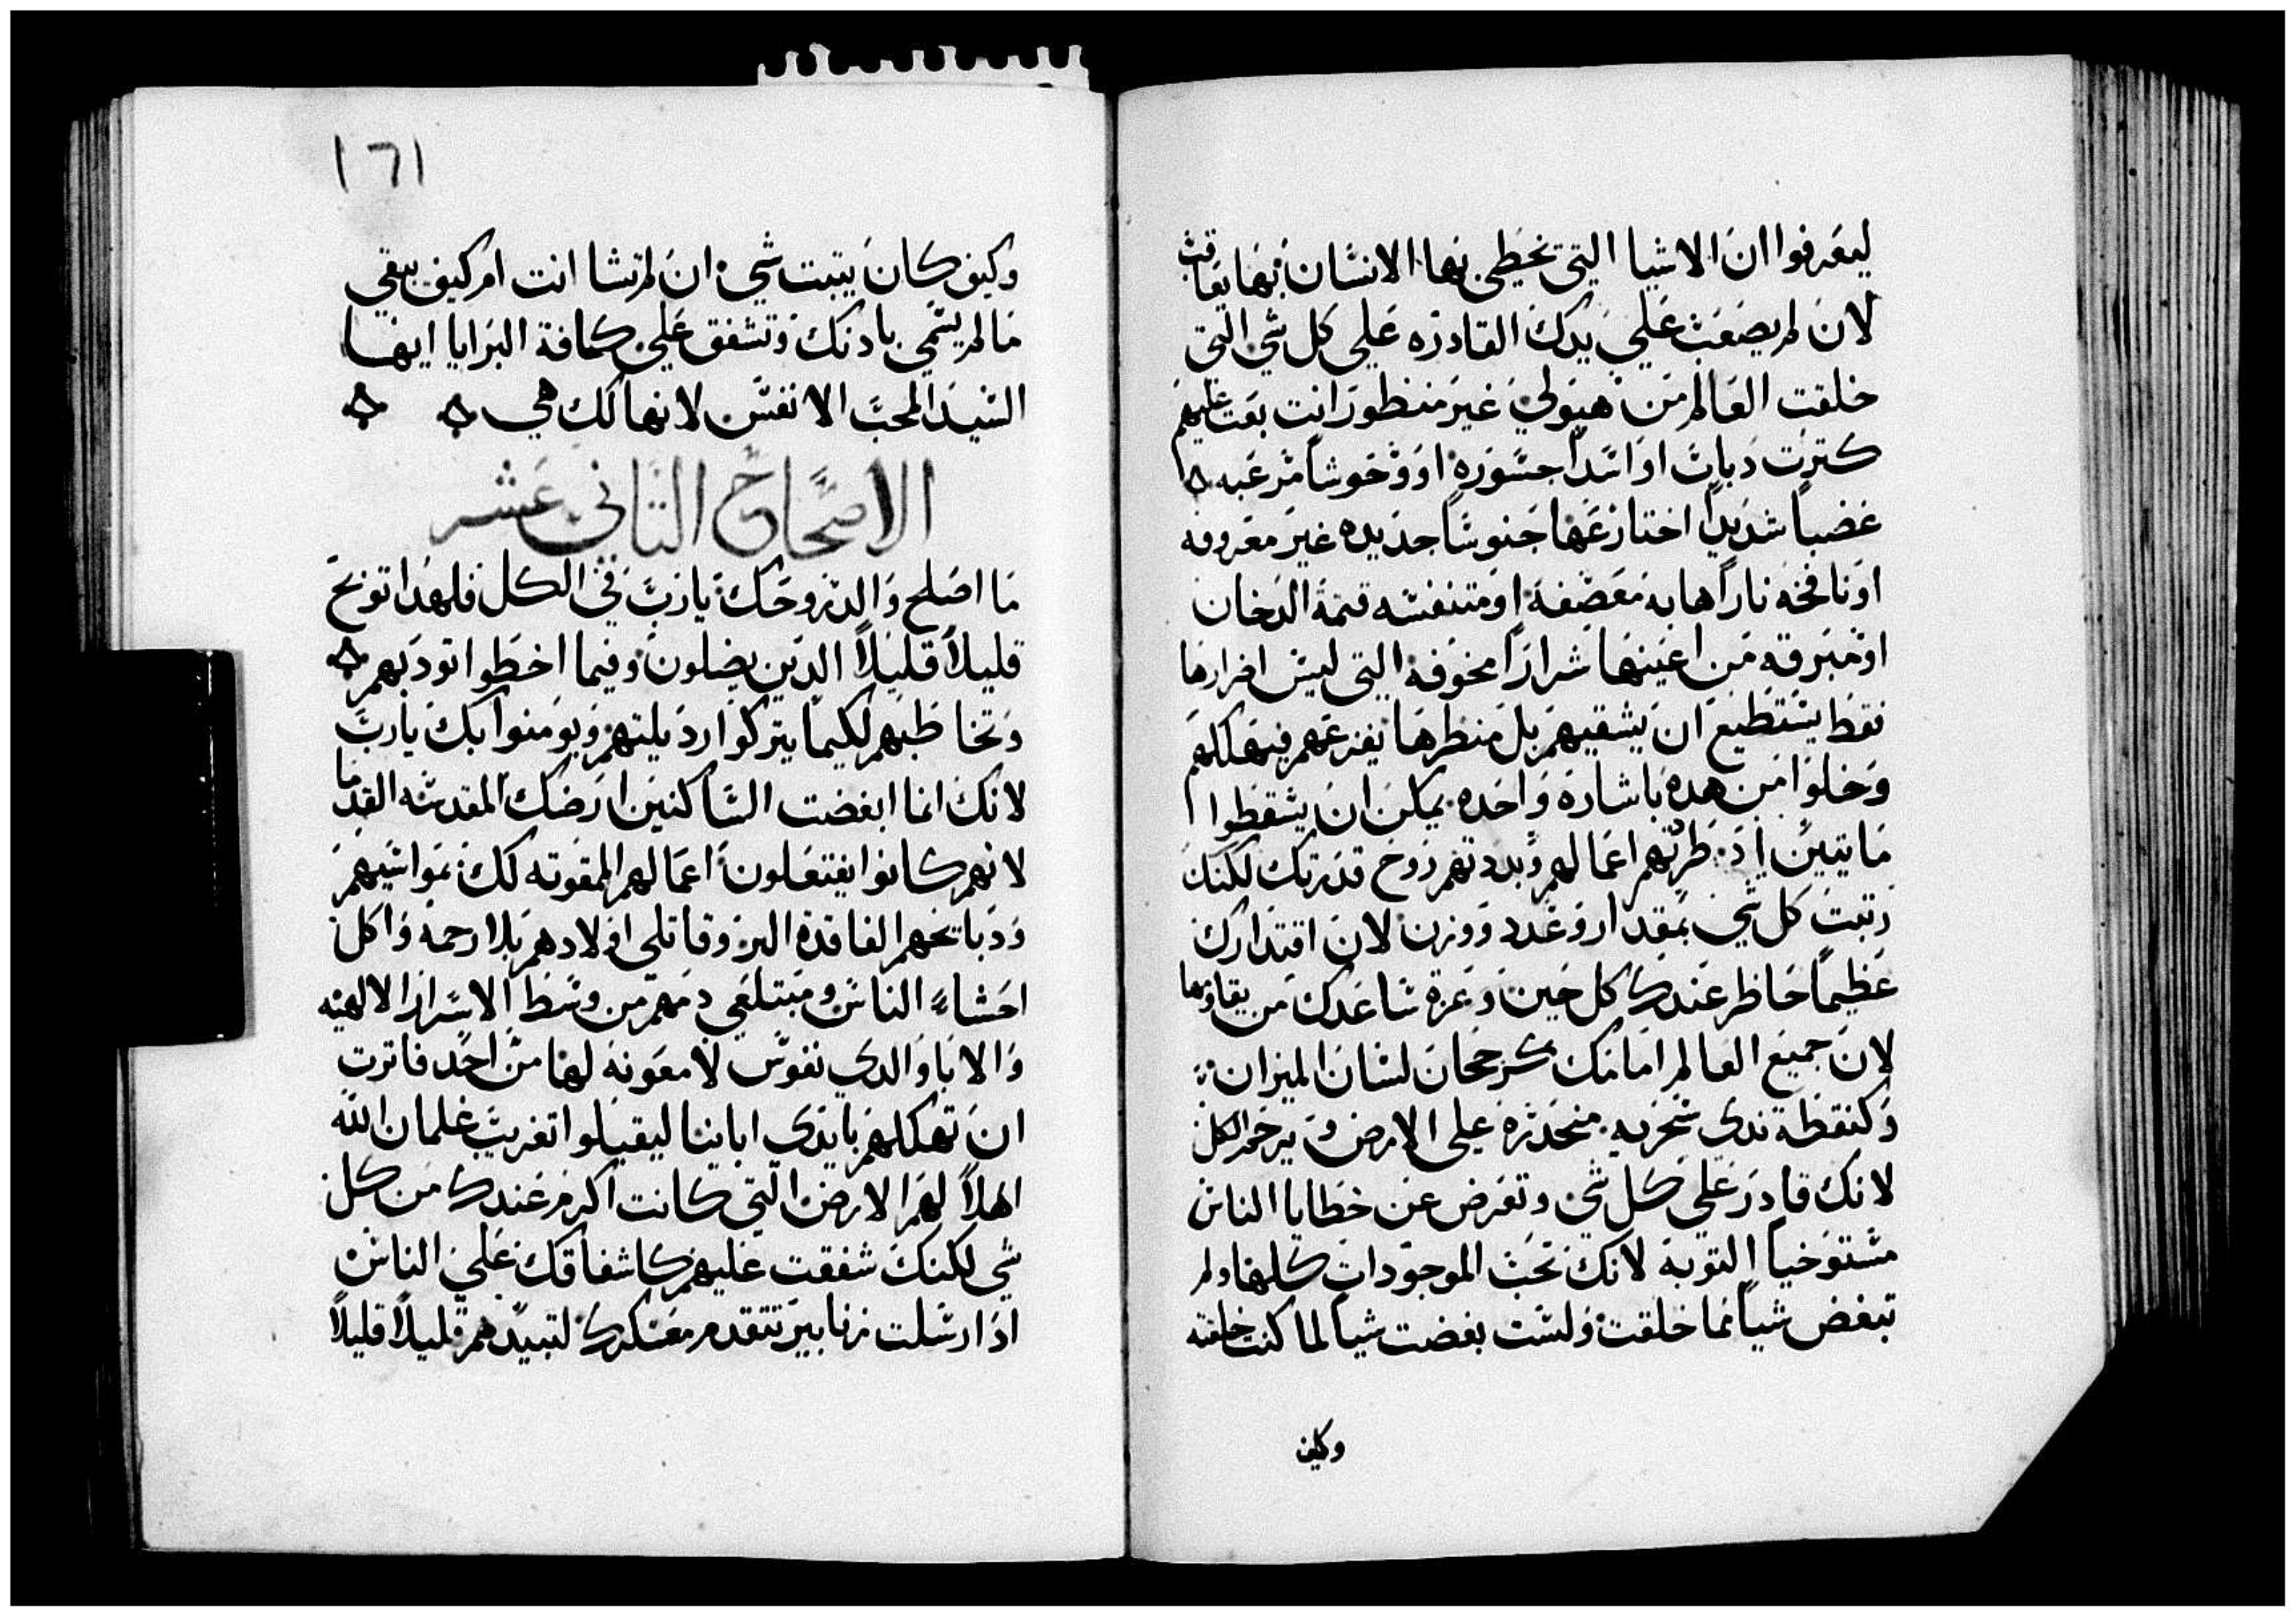 ليعرفوا ان الاشيا التي تخطي بها الانسان بها يعاقب
لان لم يصعب علي يدك القادره علي كل شي التي
خلقت العالم من هيولي غير منظور انت بعت عليهم
كترت دبات او اسدا جسوره او وحوشا مرعبه
غضبا شديدا اختازعها جنوسا جديده غير معروفه
او نافخه نارا هابه معصفه او متنفسه قتمة الدخان
او مبرقه من اعينها شرارا مخوفه التي ليس اضرارها
فقط يستطيع ان يشقيهم بل منظرها يفزعهم فيهلكهم
وخلوا من هده باشاره واحده يمكن ان يسقطوا
مايتين اد طرتهم اعمالهم وبددتهم روح قدرتك لكنك
رتبت كل شي بمقدار وعدد ووزن لان اقتدارك
عظيما حاظر عندك كل حين وعزة ساعدك من يقاومها
لان جميع العالم امامك كرجحان لسان الميزان
وكنقطة ندي سحريه منحدره علي الارض وترحم الكل
لانك قادر علي كل شي وتعرض عن خطايا الناس
مستوخيا التوبه لانك تحب الموجودات كلها ولم
تبغض شيا مما خلقت ولست بغضت شيا لما كنت خلقته
وكيف
١٦١
وكيف كان يتبت شي ان لم تشا انت ام كيف يبقي
ما لم يسمي بادنك وتشفق علي كافة البرايا ايها
السيد المحب الانفس لانها لك هي
الاصحاح التاني عشر
ما اصلح والد روحك يا رب في الكل فلهدا توبخ
قليلا قليلا الدين يضلون وفيما اخطوا تودبهم
وتخاطبهم لكيما يتركوا رديلتهم ويومنوا بك يا رب
لانك انما ابغضت الساكنين ارضك المقدسه القدما
لانهم كانوا يفتعلون اعمالهم الممقوته لك بمواشيهم
ودبايحهم الفاقدة البر وقاتلي اولادهم بلا رحمه واكل
احشاء الناس ومبتلعي دمهم من وسط الاسرار الالهيه
والابا والدي نفوس لا معونه لها من احد فاترت
ان تهلكهم بايدي اباينا ليقبلوا تغريب غلمان الله
اهلا لهم الارض التي كانت اكرم عندك من كل
شي لكنك شفقت عليهم كاشفاقك علي الناس
اد ارسلت زنابير تتقدم معسكرك لتبيدهم قليلا قليلا